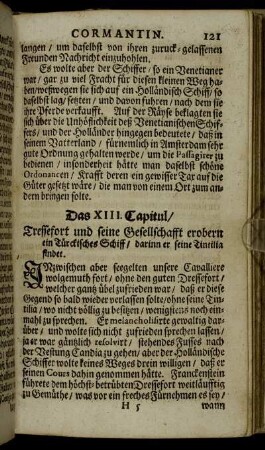 CORMANTIN. 121
langen / um daselbst von ihren zuruck-gelassenen
Freunden Nachricht einzuhohlen.
Es wolte aber der Schiffer / so ein Venetianer
war / gar zu viel Fracht für diesen kleinen Weg ha-
ben/weßwegen sie sich auf ein Holländisch Schiff/ so
daselbst lag / setzten / und davon fuhren / nach dem sie
ihre Pferd verkaufft. Auf der Räyse beklagten sie
sich über die Unhöflichkeit deß Venetianischen Schif-
fers / und der Holländer hingegen bedeutete / daß in
seinem Vatterland / fürnemlich in Amsterdam sehr
gute Ordnung gehalten werde / um die Passagirer zu
bedienen / insonderheit hätte man daselbst schöne
Ordonancen / Krafft deren ein gewisser Tax auf die
Güter gesetzt wäre / die man von einem Ort zum an-
dern bringen solte.
Das XIII. Capitul /
Tressefort und seine Gesellschafft erobern
ein Türckisches Schiff / darinn er seine Tintilia
findet.
INzwischen aber seegelten unsere Cavalliere
wolgemuth fort / ohne den guten Tressefort /
welcher gantz übel zufrieden war / daß er diese
Gegend so bald wieder verlassen solte / ohne seine Tin-
tilia / wo nicht völlig zu besitzen / wenigstens noch ein-
mahl zu sprechen. Er melancholisirte gewaltig dar-
über / und wolte sich nicht zufrieden sprechen lassen /
ja er war gäntzlich resolvirt / stehendes Fusses nach
der Vestung Candia zu gehen / aber der Holländische
Schiffer wolte keines Weges drein willigen / daß er
seinen Cours dahin genommen hätte. Franckenstein
führete dem höchst-betrübten Dressefort weitläufftig
zu Gemüthe / was vor ein freches Fürnehmen es sey /
H 5 wann